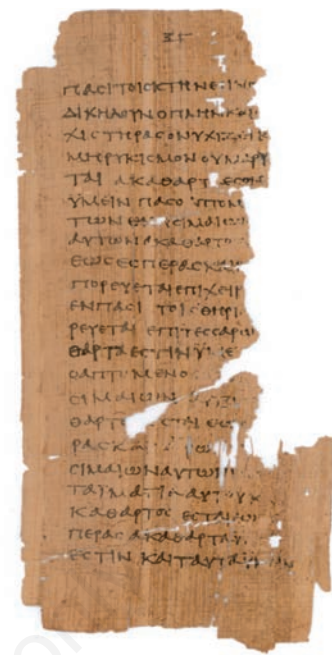 ΞΓ
ΠΑСΙΤΟΙСΚΤΗΝΕСΙΝ
ΔΙΧΗΛΟΥΝΟΠΛΗΝΚΑΙ
ΧΙСΤΗΡΑСΟΝΥΧΙΖΕΙΚ
ΜΗΡΥΚΙСΜΟΝΟΥΜΑΡΥ
ΤΑΙ ΑΚΑΘΑΡΤ ΕСΟΝ
ΥΜΕΙΝ ΠΑСΟ ΠΤΟΜ
ΤΩΝ ΘΝ СΙΜΑΙΩΝ
ΑΥΤΩΝΑΚΑΘΑΡΤΟ
ΕΩСΕСΠΕΡΑСΚΑΙ
ΠΟΡΕΥΕΤΑΙΕΠΙΧΕΙΡ
ΕΝΠΑСΙ ΤΟΙСΘΗΡΙ
ΡΕΥΕΤΑΙ ΕΠΙΤΕССΑΡΩ
ΘΑΡΤΑΕСΤΙΝΥΜΕ
ΟΑΠΤΟΜΕΝΟ
СΙΜΑΙΩΝ
ΘΑΡΤ СΤΑΙ ΕΩ
ΡΑСΚΑΙ
СΙΜΑΙΩΝΑΥΤΩΝ
ΤΑΙΜΑΤΙΑΑΥΤΟΥΚ
ΚΑΘΑΡΤΟС ΕСΤΑΙ
ΠΕΡΑСΑΚΑΘΑΡΤΑΥ
ΕСΤΙΝ ΚΑΙΤΑΥΤΑ